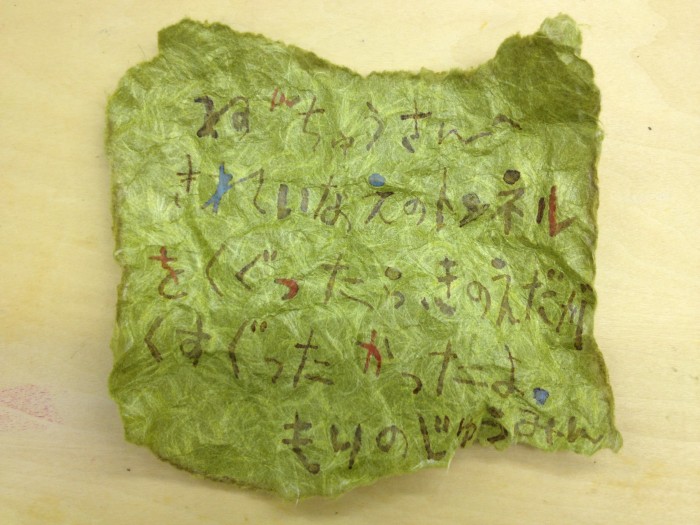 ねんちゅうさんへ
きれいなえのトンネル
をくぐったら、きのえだが
くすぐったかったよ。
もりのじゅうみん